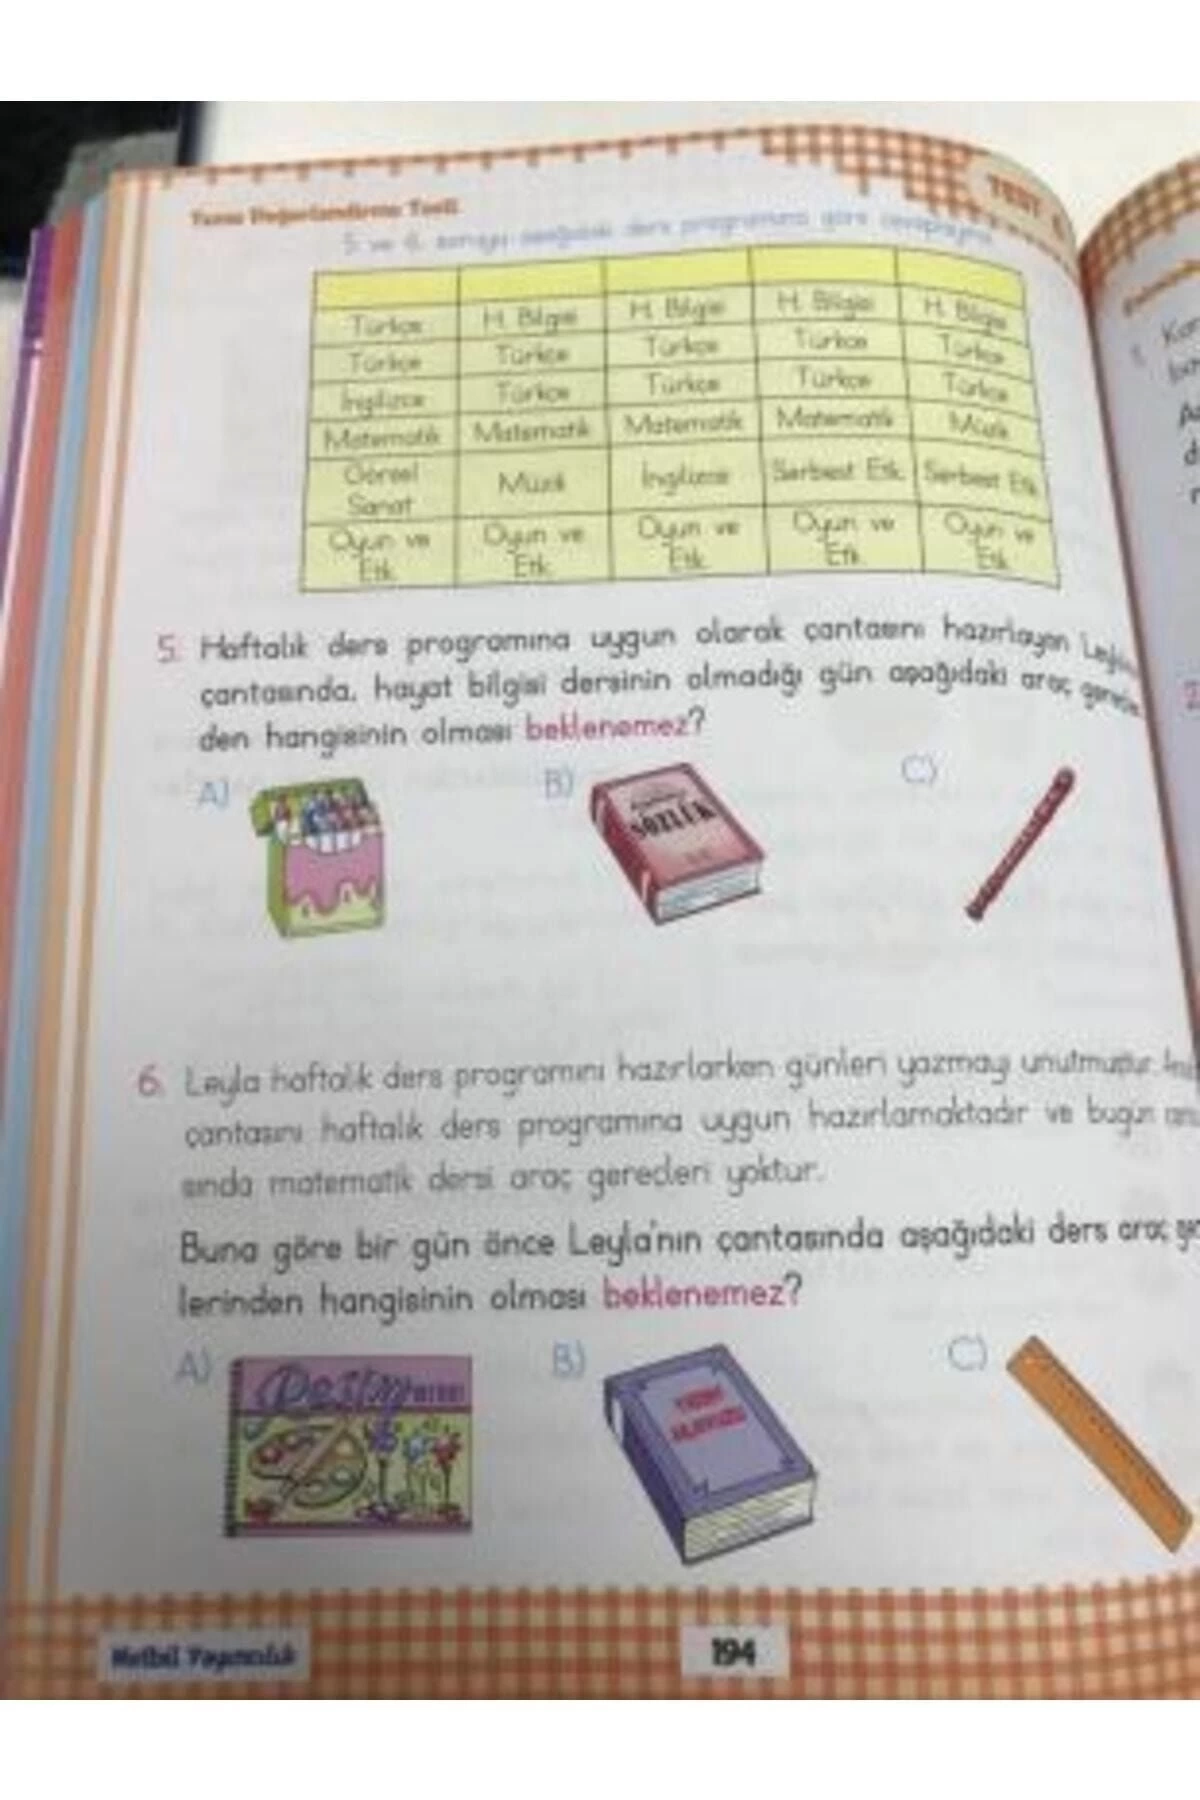 Tema Değerlendirme Testi
TEST
5 ve 6. soruyu aşağıdaki ders programına göre cevaplayın.
Türkçe H. Bilgisi H. Bilgisi H. Bilgisi H. Bilgisi
Türkçe Türkçe Türkçe Türkçe Türkçe
İngilizce Türkçe Türkçe Türkçe Türkçe
Matematik Matematik Matematik Matematik Müzik
Görsel Sanat Müzik İngilizce Serbest Etk. Serbest Etk.
Oyun ve Etk. Oyun ve Etk. Oyun ve Etk. Oyun ve Etk. Oyun ve Etk.
5. Haftalık ders programına uygun olarak çantasını hazırlayan
çantasında, hayat bilgisi dersinin olmadığı gün aşağıdaki araç
den hangisinin olması beklenemez?
A) B) C)
SÖZLÜK
6. Leyla haftalık ders programını hazırlarken günleri yazmayı unutmuştur.
çantasını haftalık ders programına uygun hazırlamaktadır ve bugün
sında matematik dersi araç gereçleri yoktur.
Buna göre bir gün önce Leyla'nın çantasında aşağıdaki ders araç
lerinden hangisinin olması beklenemez?
A) B) C)
Resim
Netbil Yayıncılık
194